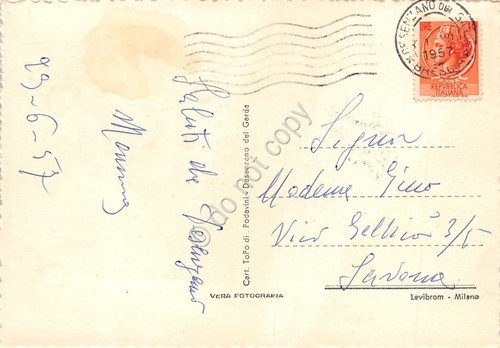 29-6-57
Saluti da Desenzano
Mamma
Cart. ToPo di: Podavini - Desenzano del Garda
VERA FOTOGRAFIA
Levibrom - Milano
DESENZANO DEL GARDA
1957
BRESCIA
REPVBBLICA
ITALIANA
Signor
Mademe Gino
Vico 3/5
Savona
do not copy